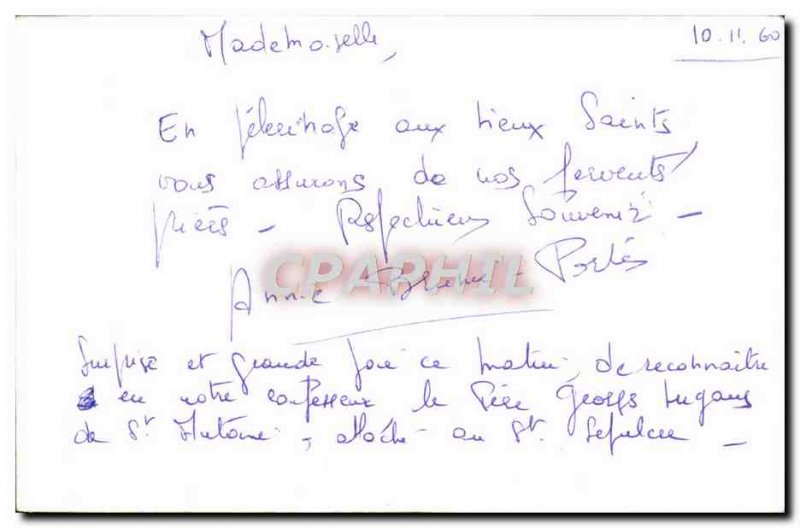 Mademoiselle,
10.11.60
En pélerinage aux Lieux Saints
vous assurons de nos fervents
prières - Respectueux Souvenir -
CPARPHIL
Annie Portès
Surprise et grande joie ce matin, de reconnaître
en notre confesseur le Père Georges
de St Antoine, attaché au St. Sépulcre -